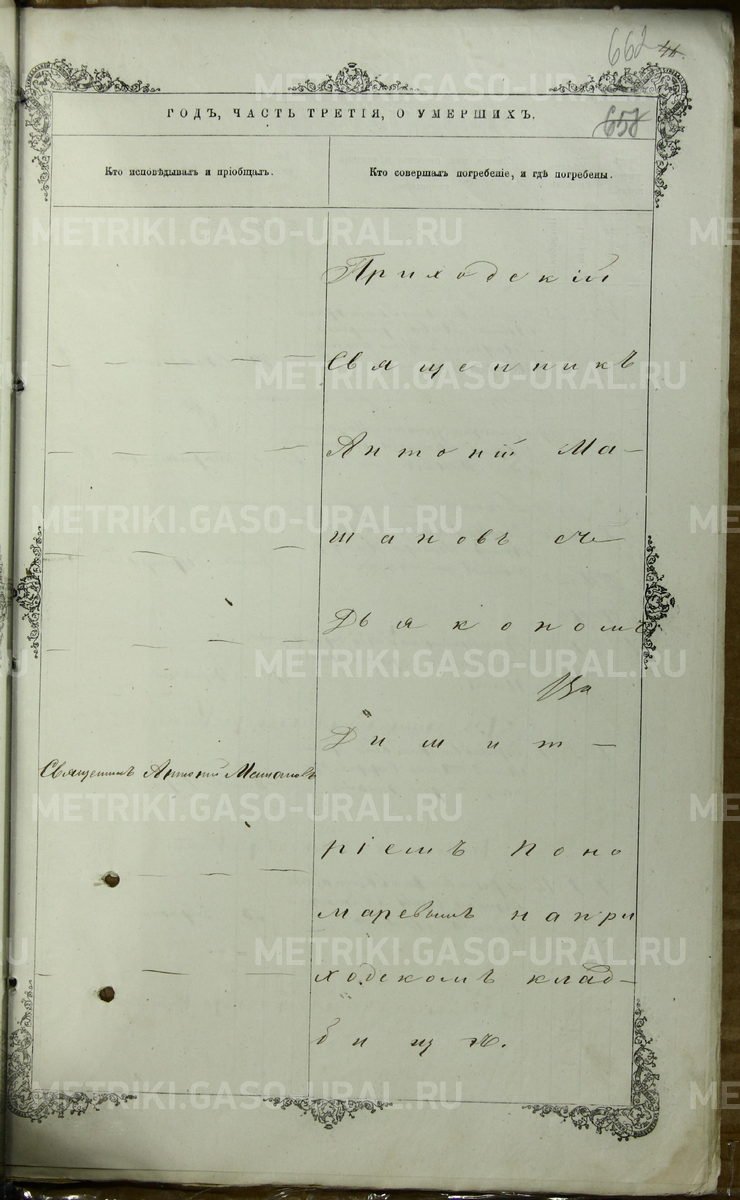 662
46.
658
ГОДЪ, ЧАСТЬ ТРЕТІЯ, О УМЕРШИХЪ.
Кто исповѣдывалъ и пріобщалъ.
Кто совершалъ погребеніе, и гдѣ погребены.
Приходскій
Священникъ
Антоній Ма-
шановъ съ
Дьякономъ
Димит-
Священникъ Антоній Машановъ
ріемъ Поно
маревымъ на при
ходскомъ клад-
бищѣ.
METRIKI.GASO-URAL.RU